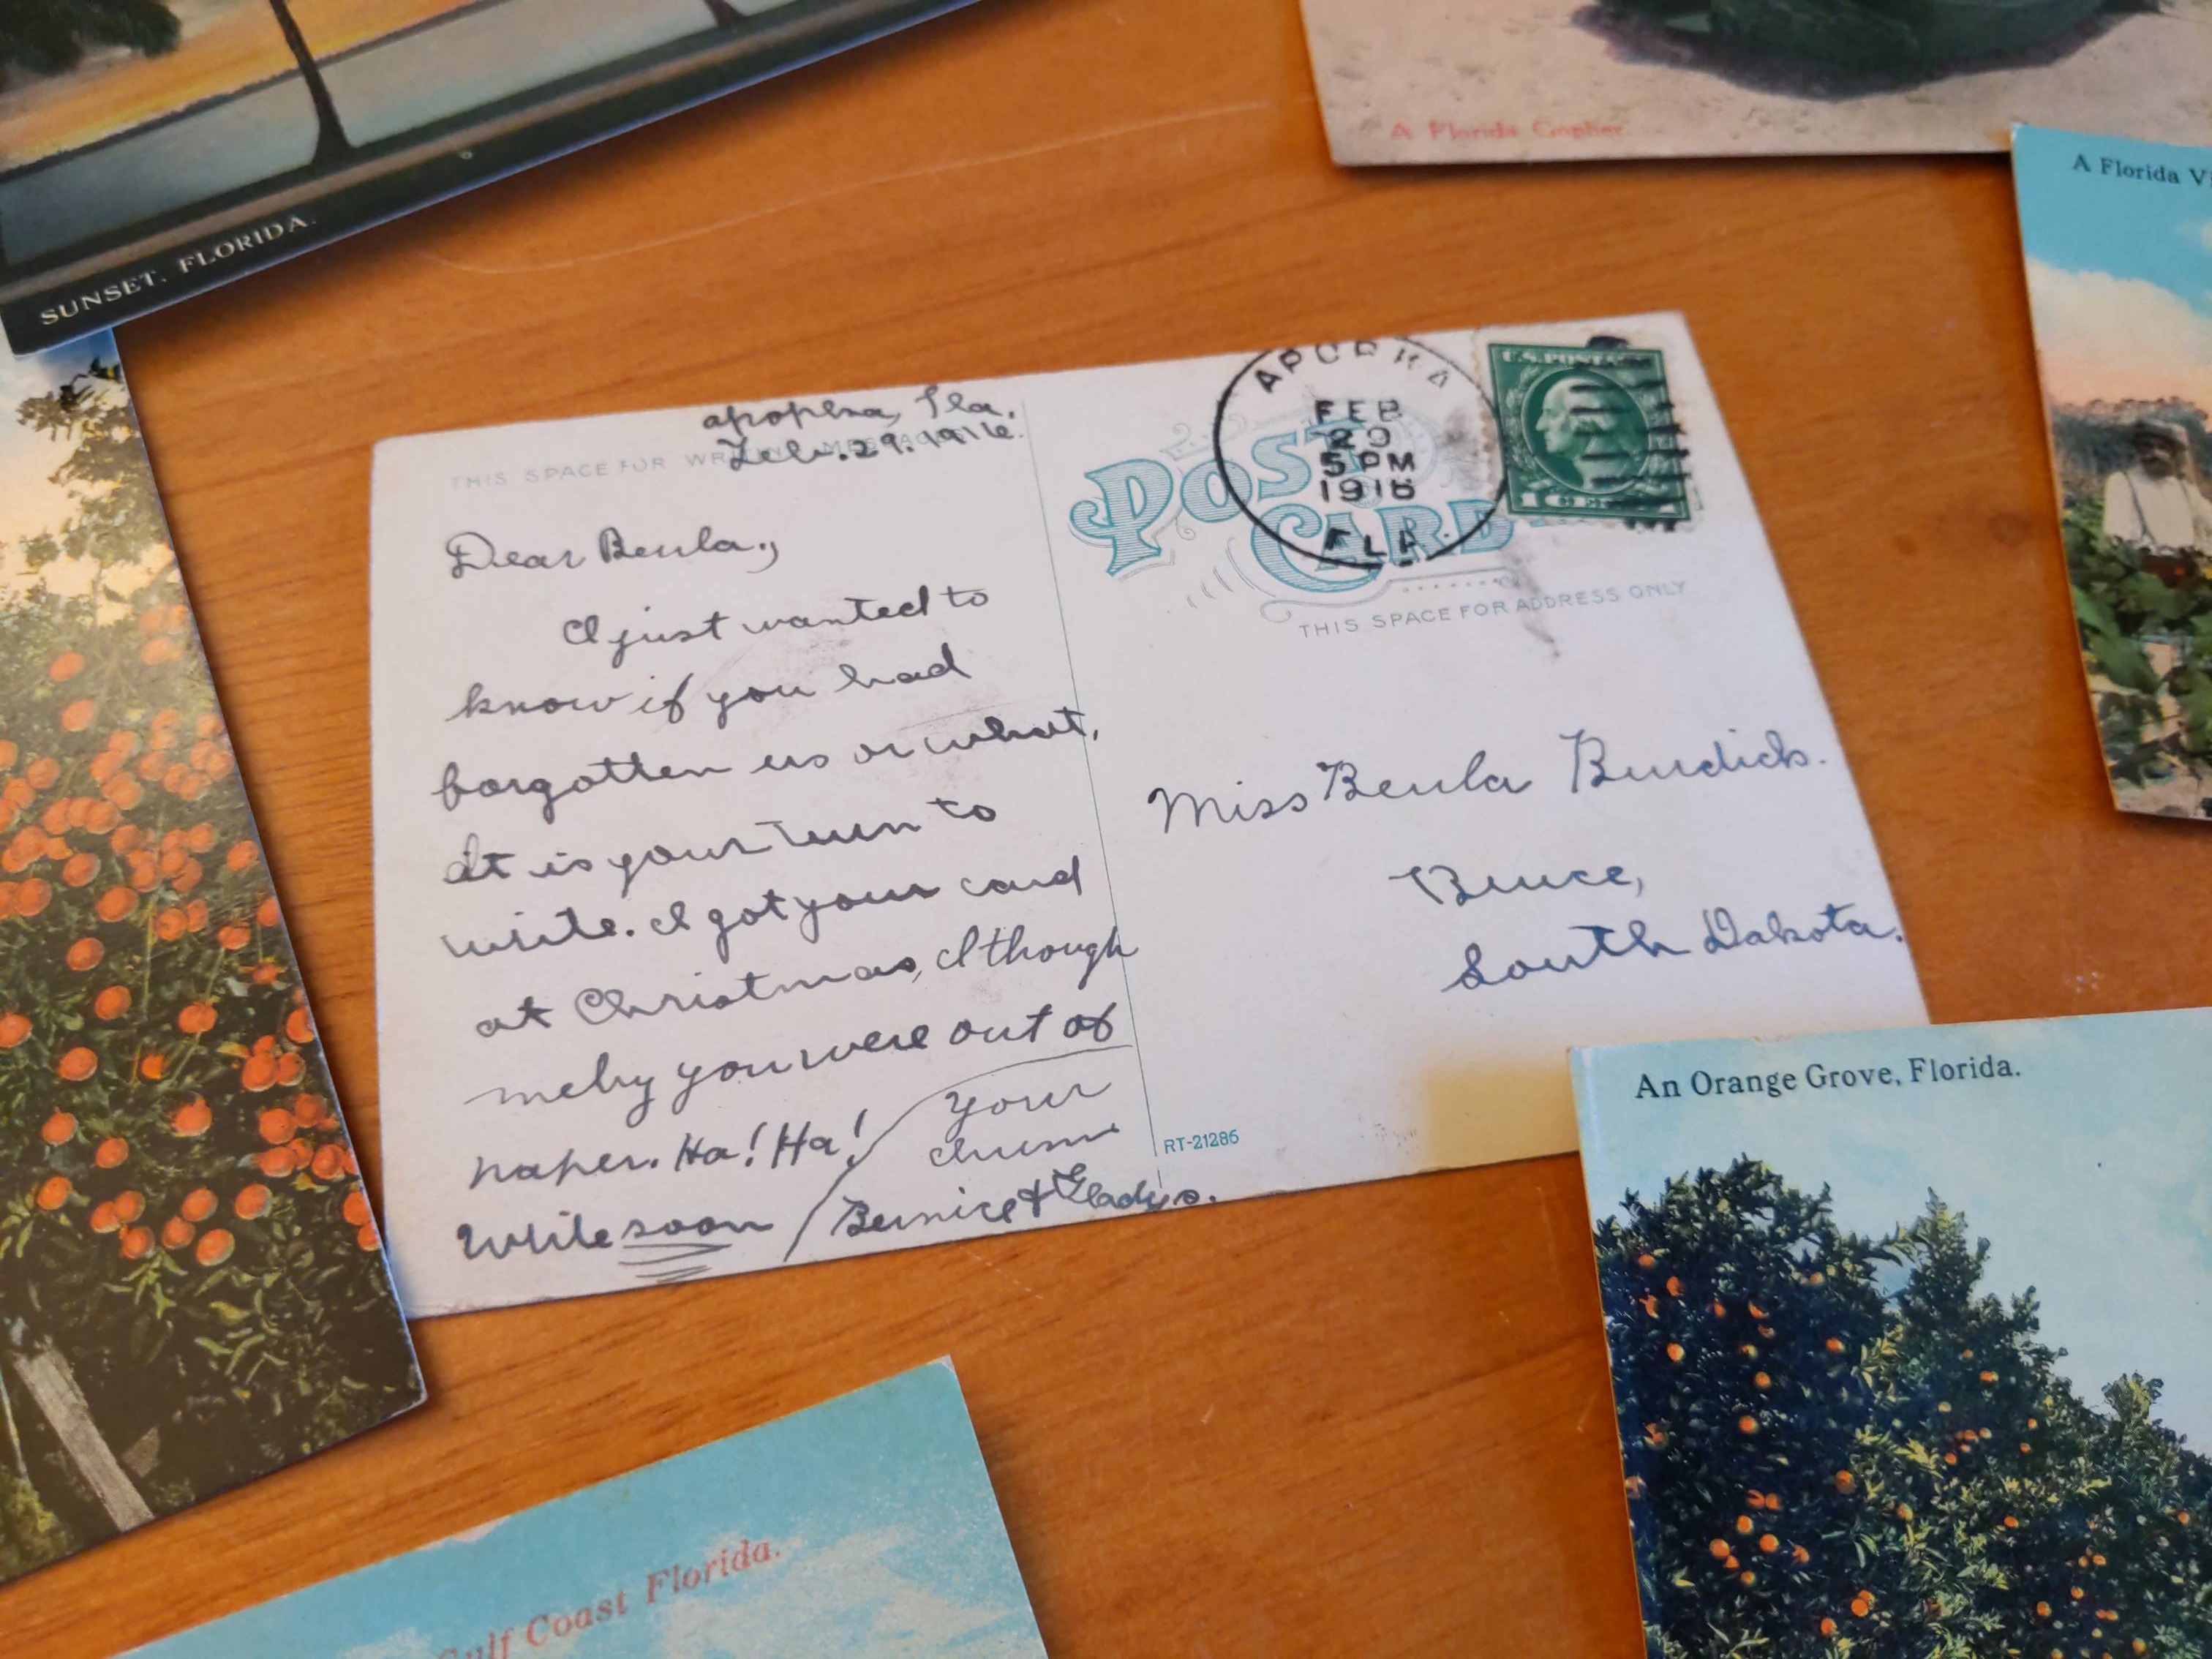 SUNSET, FLORIDA.
A Florida Gopher.
A Florida
apopka, Fla.
Feb. 29. 1916.
THIS SPACE FOR
Dear Beula.,
I just wanted to
know if you had
forgotten us or what,
It is your turn to
write. I got your card
at Christmas, I though
meby you were out of
paper. Ha! Ha!
Write soon
Your
chums
Bernice & Gladys.
POST CARD
APOPKA
FEB
29
5 PM
1916
FLA.
U.S. POSTAGE
1 CENT
THIS SPACE FOR ADDRESS ONLY
Miss Beula Burdick.
Bruce,
South Dakota.
RT-21286
An Orange Grove, Florida.
Gulf Coast Florida.